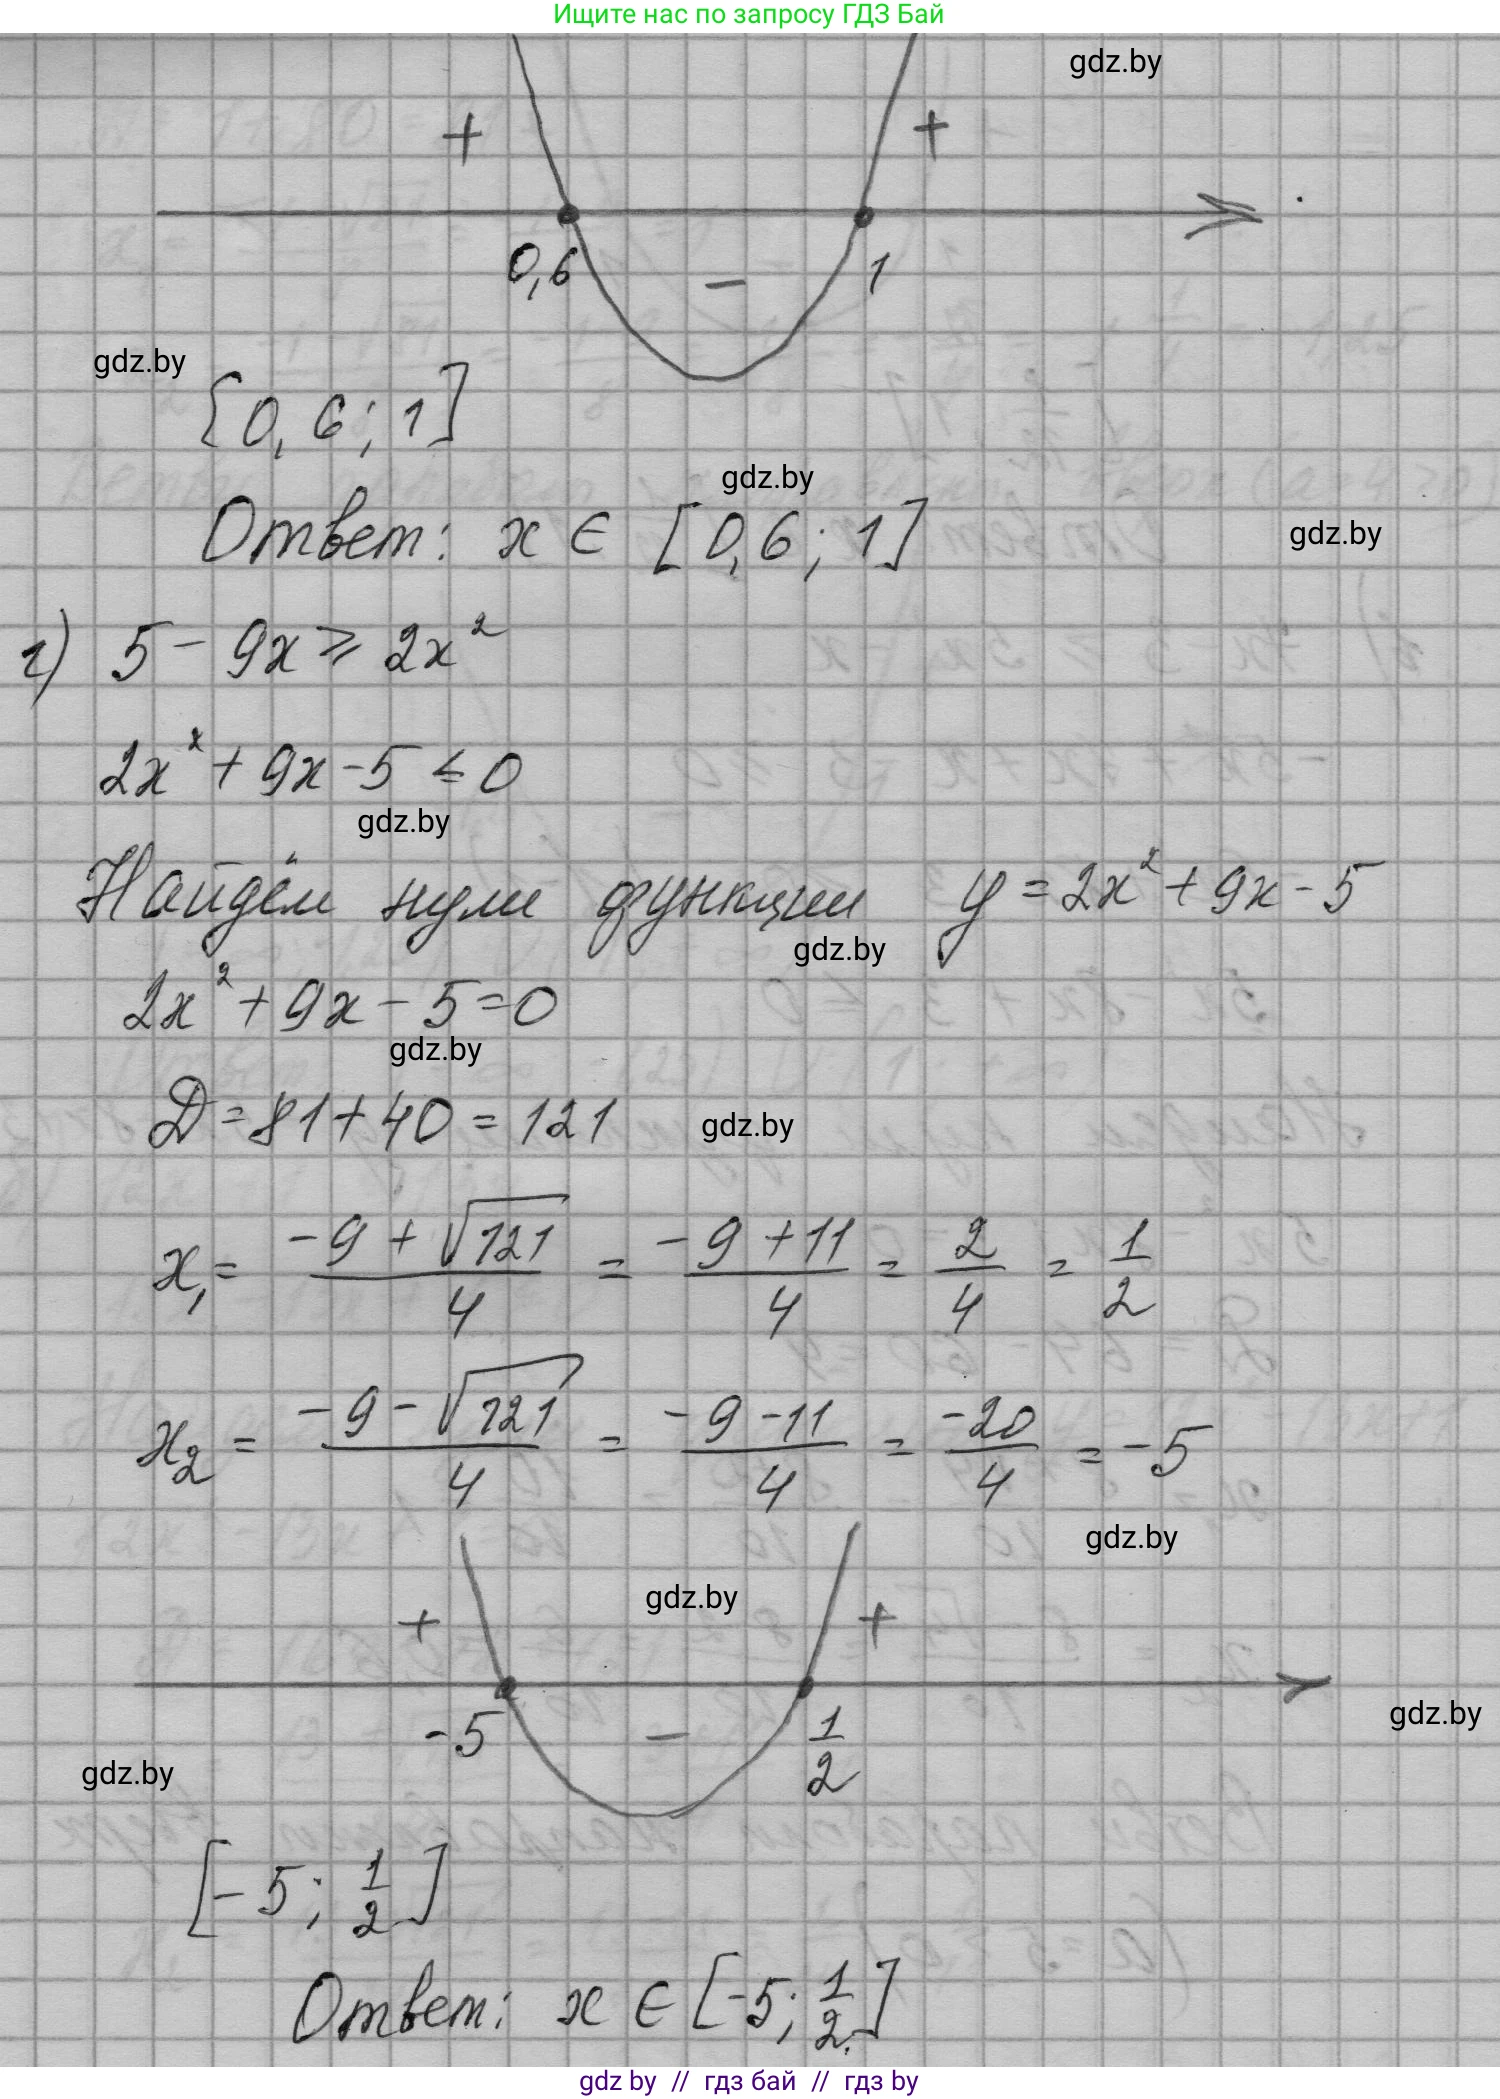 Ищите нас по запросу ГДЗ Бай
gdz.by
+ +
0,6 - 1
gdz.by
[0,6; 1]
gdz.by
Ответ: x ∈ [0,6; 1]
gdz.by
г) 5 - 9x ≥ 2x²
2x² + 9x - 5 ≤ 0
gdz.by
Найдём нули функции y = 2x² + 9x - 5
gdz.by
2x² + 9x - 5 = 0
gdz.by
D = 81 + 40 = 121
gdz.by
x₁ = (-9 + √121)/4 = (-9 + 11)/4 = 2/4 = 1/2
x₂ = (-9 - √121)/4 = (-9 - 11)/4 = -20/4 = -5
gdz.by
gdz.by
+ +
gdz.by
-5 - 1/2
gdz.by
[-5; 1/2]
Ответ: x ∈ [-5; 1/2].
gdz by // гдз бай // гдз by